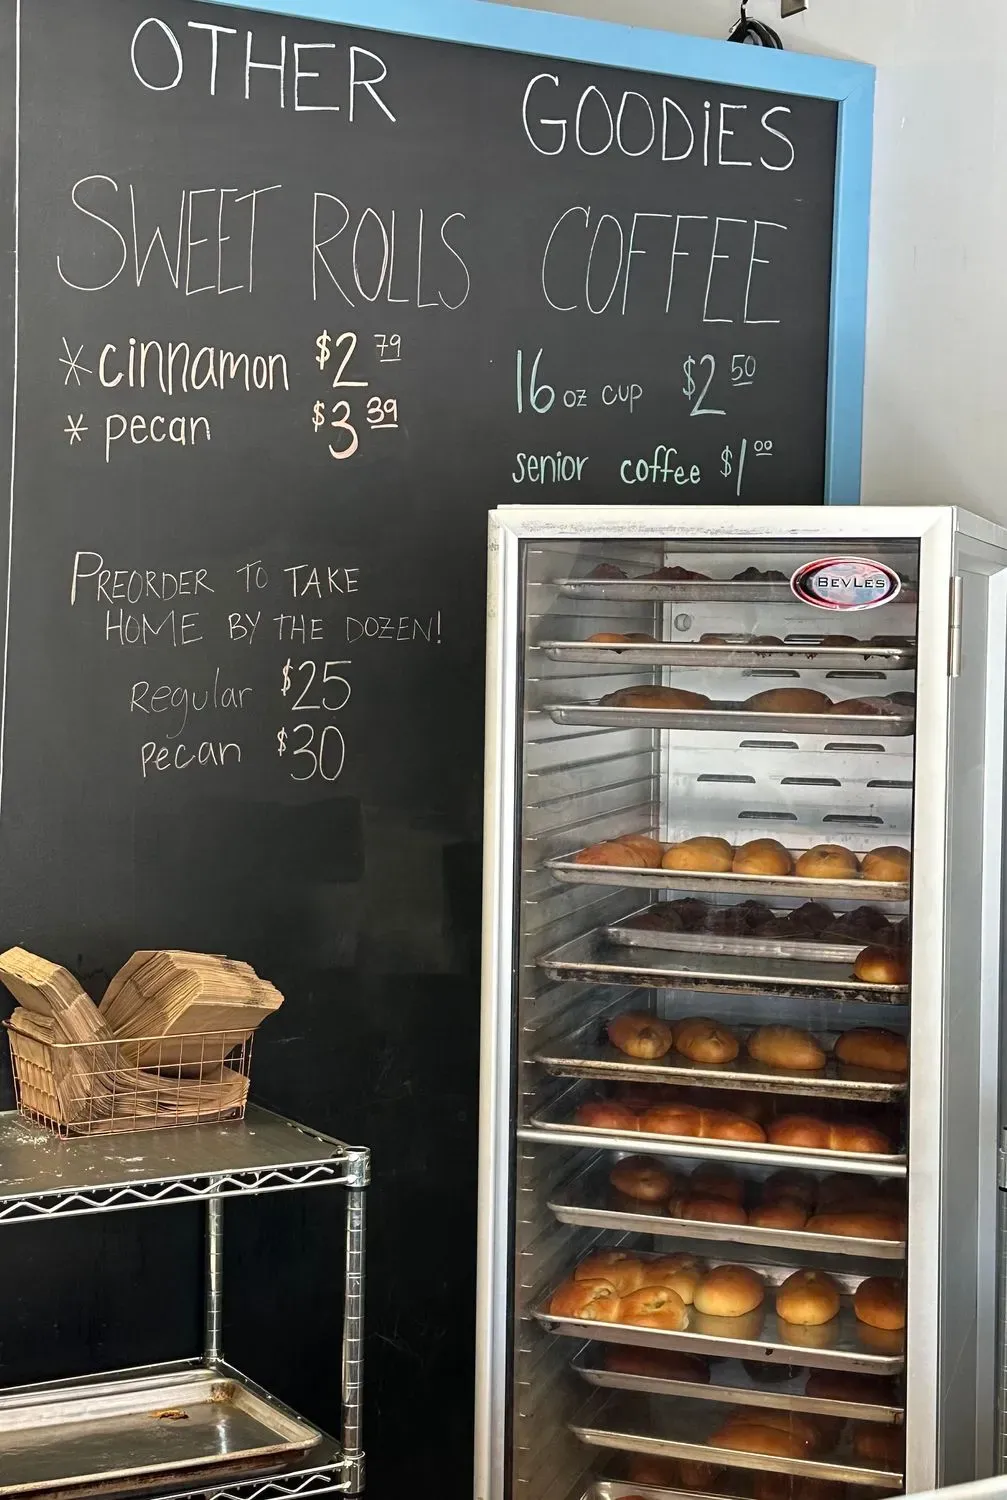 OTHER GOODIES
SWEET ROLLS
* cinnamon $2 79
* pecan $3 39
COFFEE
16 oz cup $2 50
senior coffee $1 00
PREORDER TO TAKE
HOME BY THE DOZEN!
Regular $25
pecan $30
BEVLES